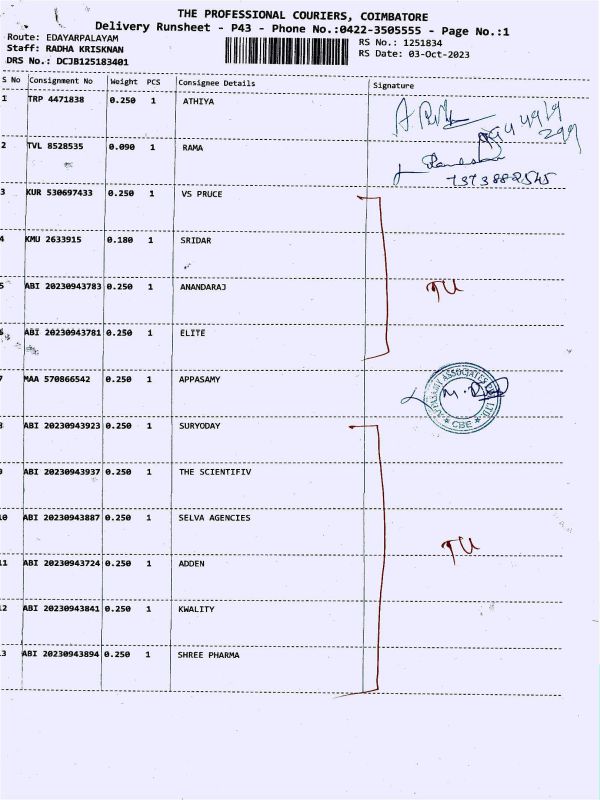 THE PROFESSIONAL COURIERS, COIMBATORE
Delivery Runsheet - P43 - Phone No.:0422-3505555 - Page No.:1
Route: EDAYARPALAYAM
Staff: RADHA KRISKNAN
DRS No.: DCJB125183401
RS No.: 1251834
RS Date: 03-Oct-2023
S No Consignment No Weight PCS Consignee Details Signature
1 TRP 4471838 0.250 1 ATHIYA
2 TVL 8528535 0.090 1 RAMA
7373882545
3 KUR 530697433 0.250 1 VS PRUCE
4 KMU 2633915 0.180 1 SRIDAR
5 ABI 20230943783 0.250 1 ANANDARAJ
TU
6 ABI 20230943781 0.250 1 ELITE
7 MAA 570866542 0.250 1 APPASAMY
APPASAMY ASSOCIATES PVT. LTD. * CBE *
8 ABI 20230943923 0.250 1 SURYODAY
9 ABI 20230943937 0.250 1 THE SCIENTIFIV
10 ABI 20230943887 0.250 1 SELVA AGENCIES
TU
11 ABI 20230943724 0.250 1 ADDEN
12 ABI 20230943841 0.250 1 KWALITY
13 ABI 20230943894 0.250 1 SHREE PHARMA